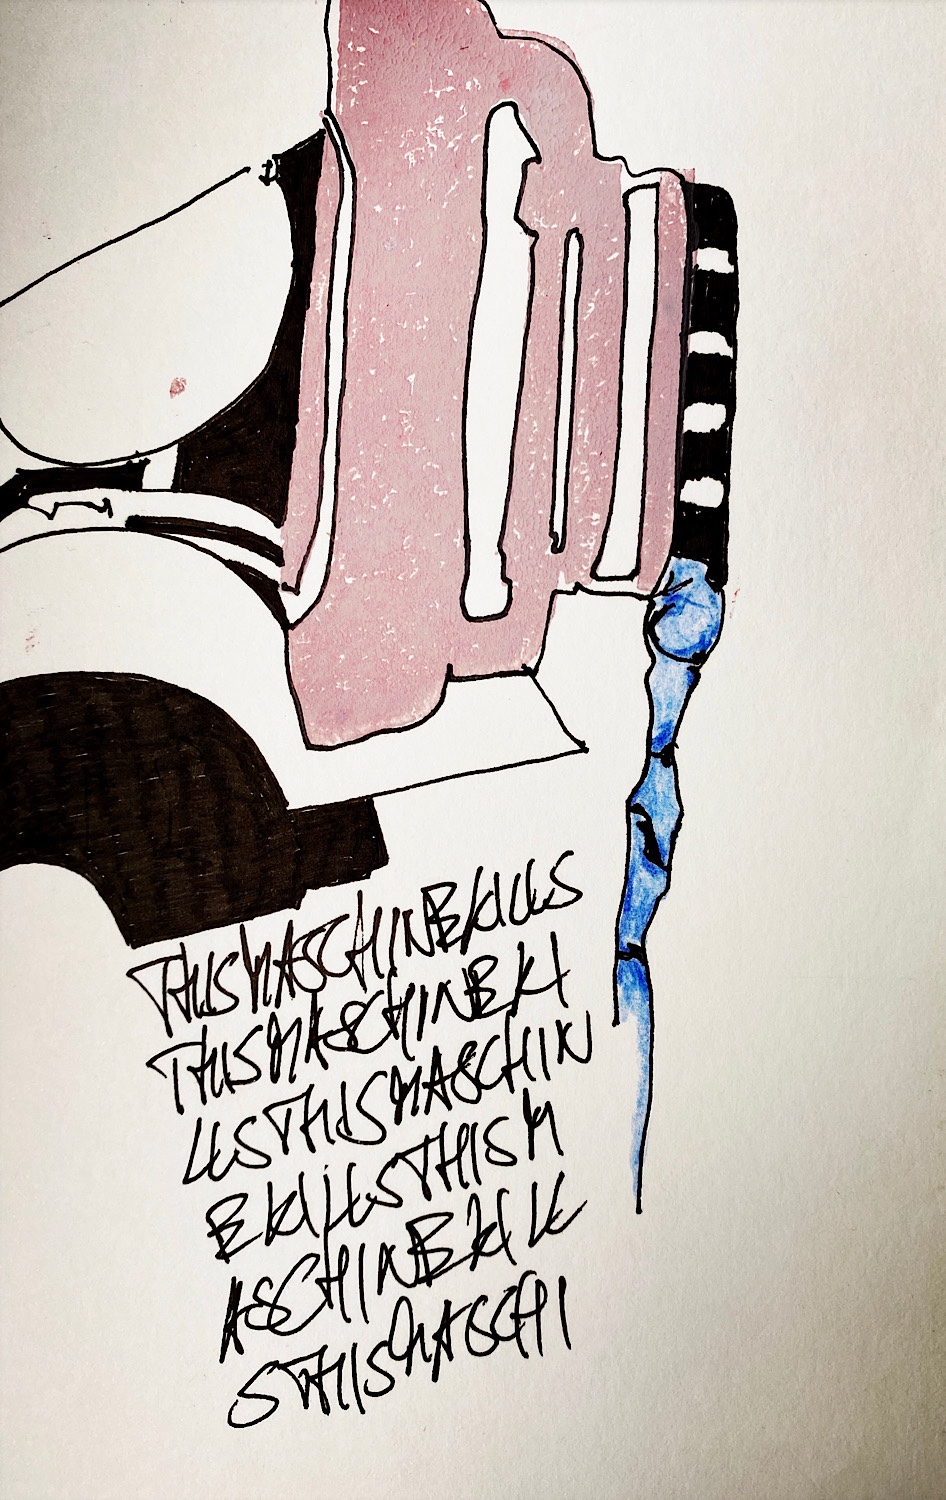 THISMASCHINEKILLS
THISMASCHINEKI
LLSTHISMASCHIN
EKILLSTHISM
ASCHINEKILL
STHISMASCHI